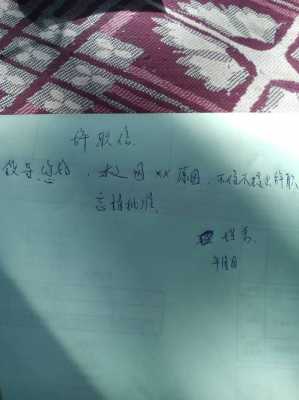 辞职信
领导您好，本人因xx原因，不得不提出辞职
忘请批准
年月日